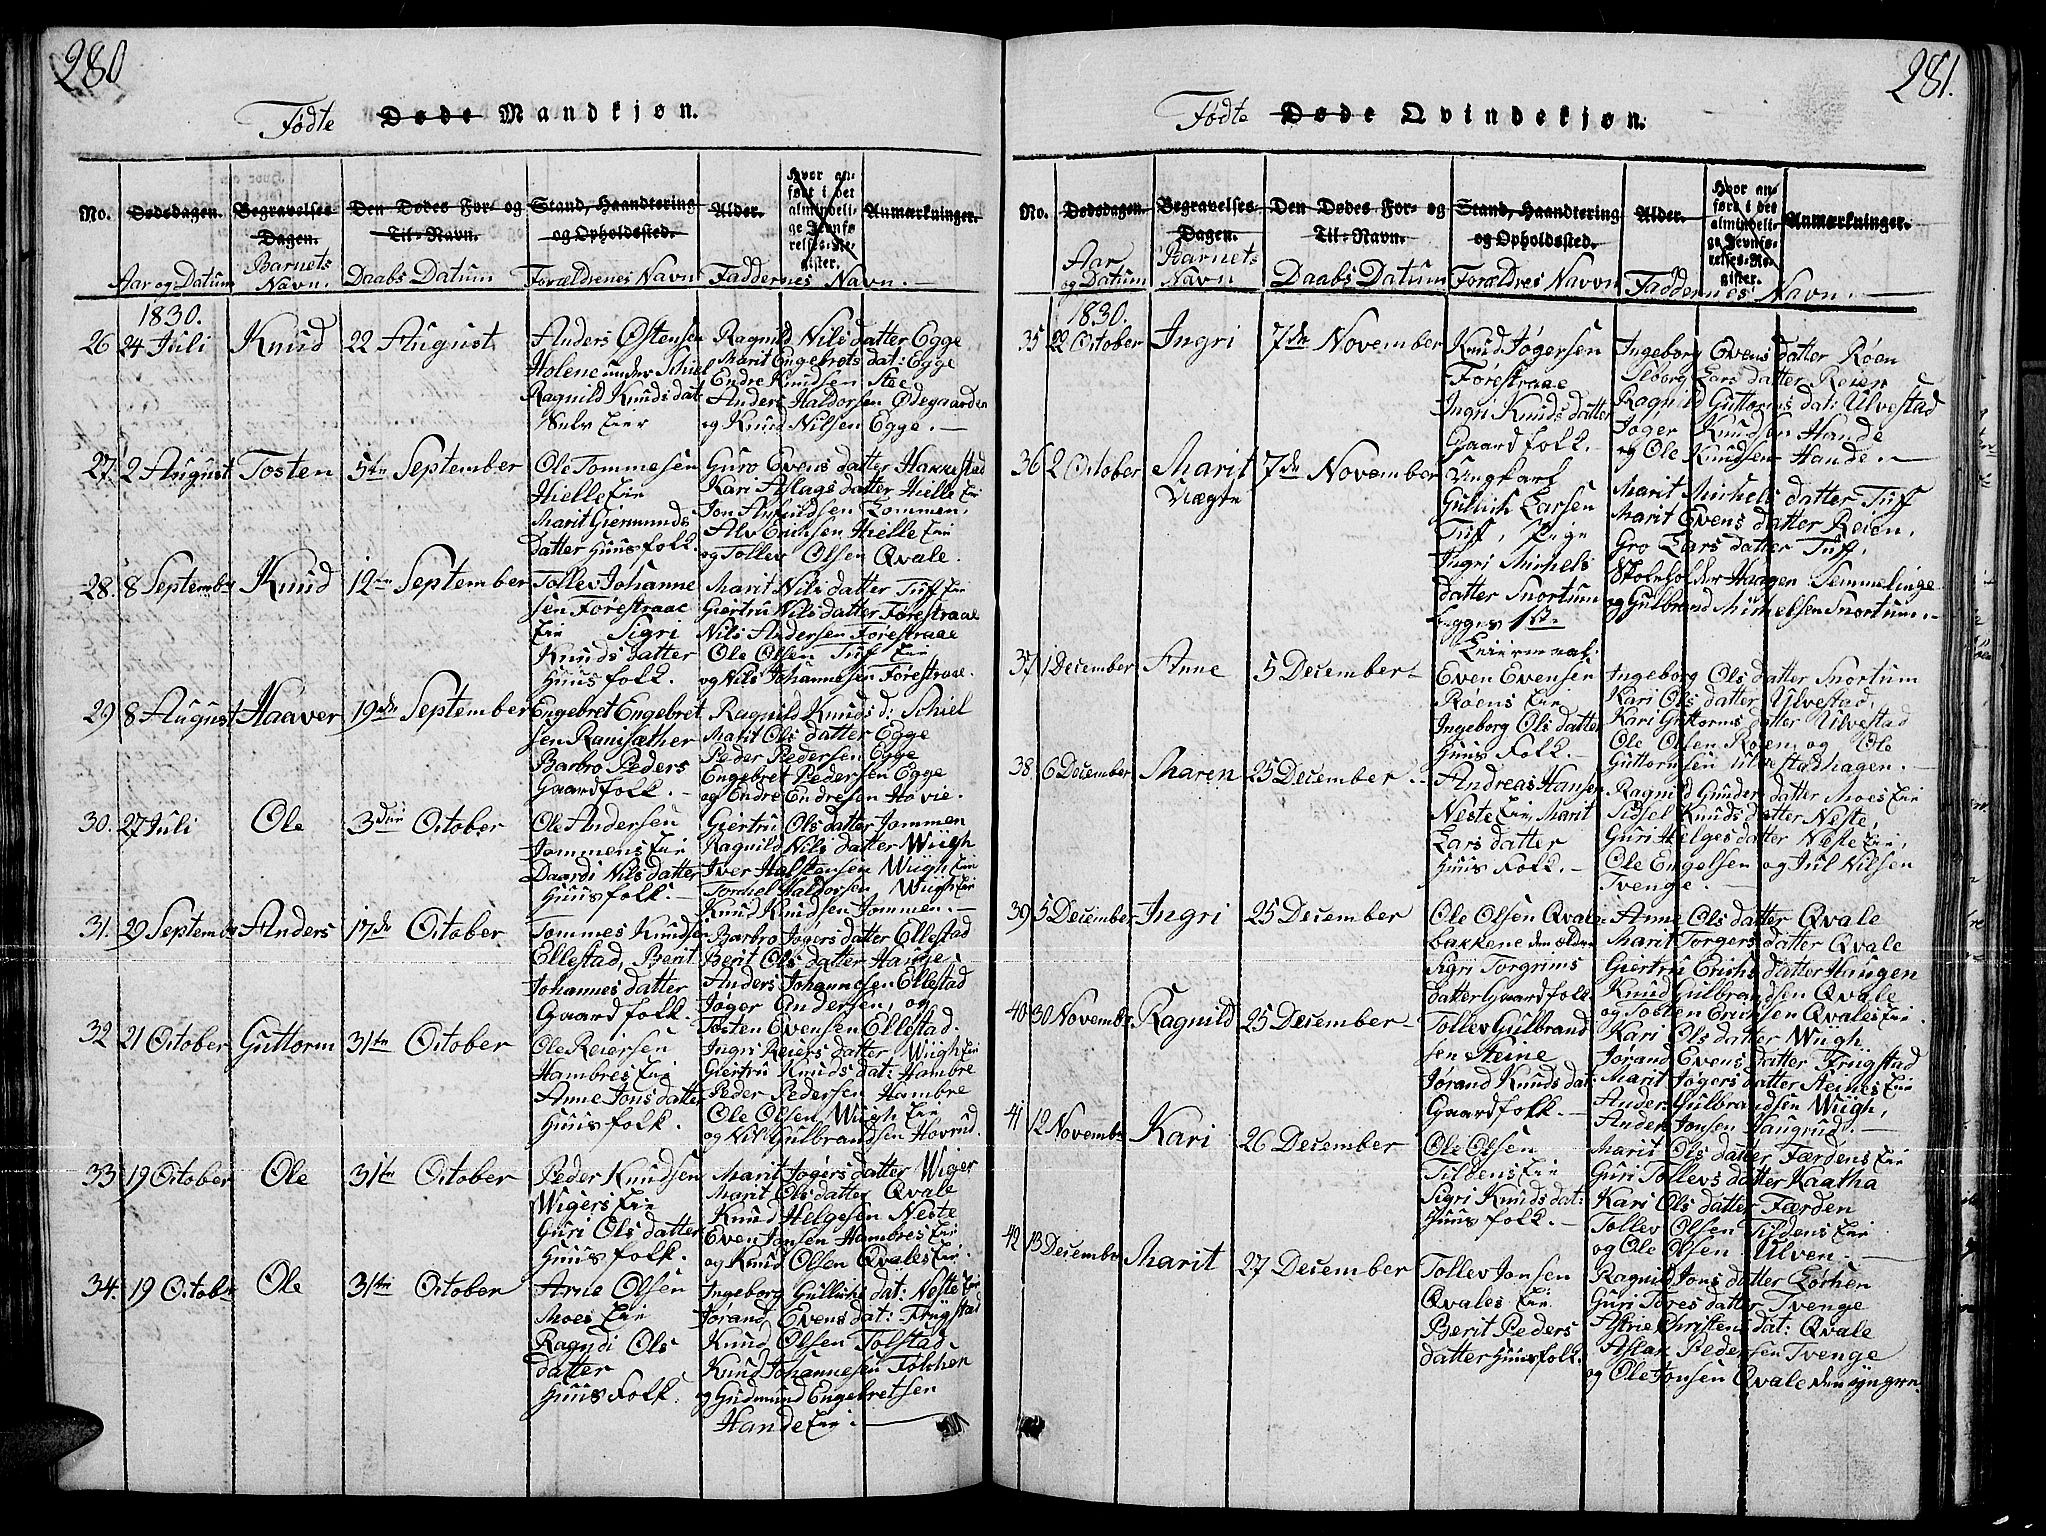 280
Fødte Døde Mandkjøn.
No. Dødsdagen. Begravelses Dagen. Den Dødes For- og Til-Navn. Stand, Haandtering og Opholdssted. Alder. Hvor anført i det almindelige Jevnførelses-Register. Anmærkninger.
Aar og Datum Barnets Navn. Daabs Datum Forældrenes Navn Faddernes Navn.
1830.
26 24 Juli Knud 22 August
Anders Østensen
Holene under Schiel
Ragnild Knuds dat:
Selv Eier
Ragnild Nils datter Egge
Marit Engebrets dat: Egge
Endre Knudsen Stee
Anders Haldorsen Ødegaarden
og Knud Nilsen Egge.
27. 2 August Tosten 5te September
Ole Tommesen
Hielle Eie
Marit Giermunds
datter Huusfolk.
Guro Evens datter Hannestad
Kari Aslags datter Hielle Eie
Jon Amundsen Lommen,
Alv Erichsen Hielle Eie
og Tollev Olsen Qvale.
28. 8 Septembr Knud 12te September
Tollev Johanne
sen Førestraae
Eie Sigri
Knuds datter
Huusfolk.
Marit Nils datter Tuff Eie
Giertru Nils datter Førestraae
Nils Andersen Førestraae
Ole Olsen Tuf Eie
og Nils Johannesen Førestraae.
29 8 August Haaver 19de September
Engebret Engebret
sen Ranisæther
Barbro Peders
Gaardfolk.
Ragnild Knuds d: Schiel
Marit Ols datter Egge
Peder Pedersen Egge
Engebret Pedersen Egge
og Endre Endresen Hovie.
30. 27 Juli Ole 3die October
Ole Andersen
Jommens Eie
Daardi Nils datter
Huusfolk.
Giertru Ols datter Jommen
Ragnild Nils datter Wiigh
Iver Halstensen Wiigh Eie
Torchel Haldorsen Wiigh Eie
Knud Knudsen Jommen.
31. 29 Septembr Anders 17de October
Tommes Knudsen
Ellestad, Berit
Johannes datter
Gaardfolk.
Barbro Jøgers datter Ellestad
Berit Ols datter Hauge
Anders Johannesen Ellestad
Jøger Andersen, og
Tosten Evensen Ellestad.
32 21 October Guttorm 31te October
Ole Reiersen
Hambres Eie
Anne Jons datter
Huusfolk.
Ingri Reiers datter Wiigh Eie
Giertru Knuds dat: Hambre
Peder Pedersen Hambre
Ole Olsen Wiigh Eie
og Nils Gulbrandsen Hovrud.
33 19 October Ole 31te October
Peder Knudsen
Wigers Eie
Guri Ols datter
Huusfolk.
Marit Jøgers datter Wiger
Marit Ols datter Qvale
Knud Helgesen Neste
Even Jonsen Hambres Eie
og Knud Olsen Qvales Eie.
34. 19 Octobr Ole 31te October
Arne Olsen
Moes Eie
Ragndi Ols
datter
Huusfolk.
Ingeborg Gullichs dat: Neste Eie
Jørand Evens dat: Frygstad
Knud Olsen Tolstad
Knud Johannesen Følchen
og Gudmund Engebretsen
Hande Eie.
281.
Fødte Døde Qvindekjøn.
No. Dødsdagen. Begravelses Dagen. Den Dødes For- og Til-Navn. Stand, Haandtering og Opholdssted. Alder. Hvor anført i det almindelige Jevnførelses-Register. Anmærkninger.
Aar og Datum Barnets Navn Daabs Datum Forældres Navn Faddernes Navn.
1830.
35 22 October Ingri 7de November
Knud Jøgersen
Førestraae
Ingri Knuds datter
Gaardfolk.
Ingeborg Evens datter Røen
Elborg Lars datter Reien
Ragnild Guttorms dat: Ulvestad
Jøger Knudsen Hande
og Ole Knudsen Hande.
36 2 October Marit 7de November
Uægte
Ungkarl
Gullich Larsen
Tuf, Pige
Ingri Michels
datter Snortum
begges 1ste
Leiermaal.
Marit Michels datter Tuff
Marit Evens datter Reien,
Gro Lars datter Tuff,
Skoleholder Haagen Semmelinge
og Gulbrand Michelsen Snortum.
37 1 December Anne 5 December
Even Evensen
Røens Eie
Ingeborg Ols datter
Huus Folk.
Ingeborg Ols datter Snortum
Kari Ols datter Ulvestad,
Kari Guttorms datter Ulvestad
Ole Olsen Røen, og Ole
Guttormsen Ulvestadhagen.
38. 6 December Maren 25 December
Andreas Hansen
Neste Eie, Marit
Lars datter
Huus Folk.
Ragnild Gunders datter Moes Eie
Sidsel Knuds datter Neste,
Guri Helges datter Neste Eie,
Ole Engelsen og Jul Nilsen
Tvenge.
39 5 December Ingri 25 December
Ole Olsen Qvale
bakkene den ældre
Sigri Torgrims
datter Gaardfolk
Anne Ols datter Qvale
Marit Torgers datter Qvale
Giertru Erichs datter Haugen
Knud Gulbrandsen Qvale
og Tosten Erichsen Qvales Eie
40 30 Novembr. Ragnild 25 December
Tollev Gulbrand
sen Steine
Jørand Knuds dat:
Gaardfolk.
Kari Ols datter Wiigh
Jørand Evens datter Frygstad
Marit Jøgers datter Steines Eie
Anders Gulbrandsen Wiigh,
Anders Jonsen Hangrud.
41 12 Novembr Kari 26 December
Ole Olsen
Tildens Eie
Sigri Knuds dat:
Huusfolk.
Marit Ols datter Færdens Eie
Guri Tollevs datter Kaatha
Kari Ols datter Færden
Tollev Olsen Tildens Eie
og Ole Olsen Ulven.
42 13 Decembr Marit 27 December
Tollev Jonsen
Qvales Eie
Berit Peders
datter Huusfolk.
Ragnild Jons datter Lørhen
Guri Tores datter Tvenge
Astrie Christens dat: Qvale
Aslak Pedersen Tvenge
og Ole Jonsen Qvale den yngre.